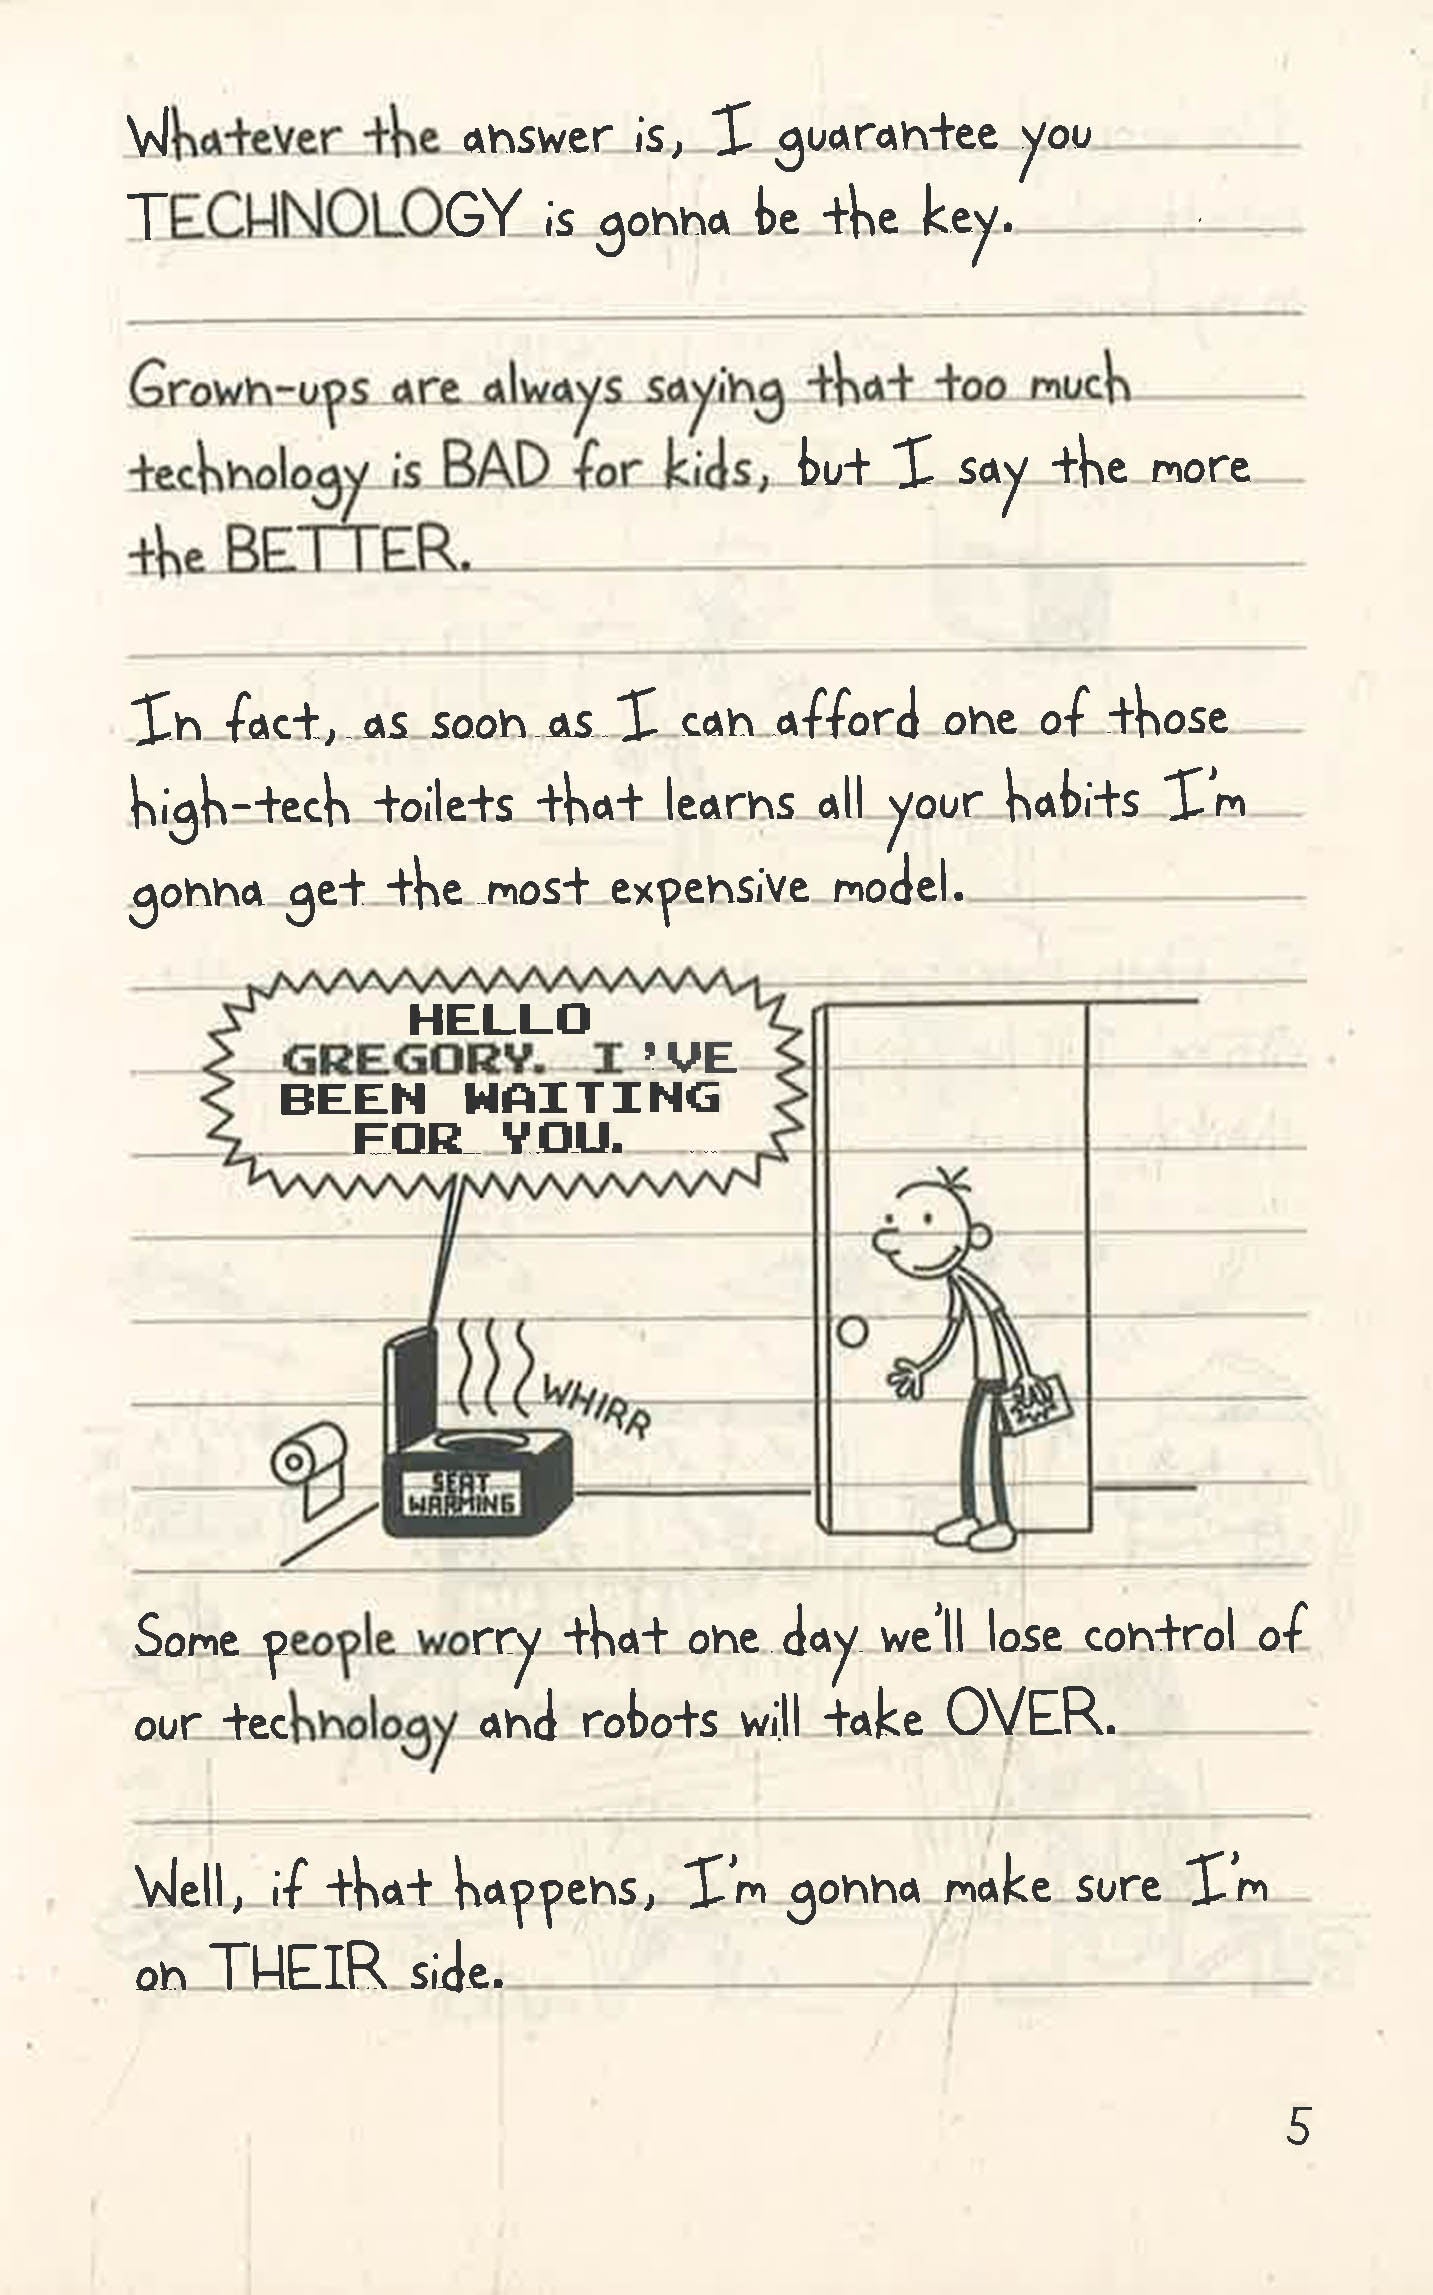 Whatever the answer is, I guarantee you
TECHNOLOGY is gonna be the key.
Grown-ups are always saying that too much
technology is BAD for kids, but I say the more
the BETTER.
In fact, as soon as I can afford one of those
high-tech toilets that learns all your habits I'm
gonna get the most expensive model.
HELLO
GREGORY. I'VE
BEEN WAITING
FOR YOU.
WHIRR
SEAT
WARMING
Some people worry that one day we'll lose control of
our technology and robots will take OVER.
Well, if that happens, I'm gonna make sure I'm
on THEIR side.
5